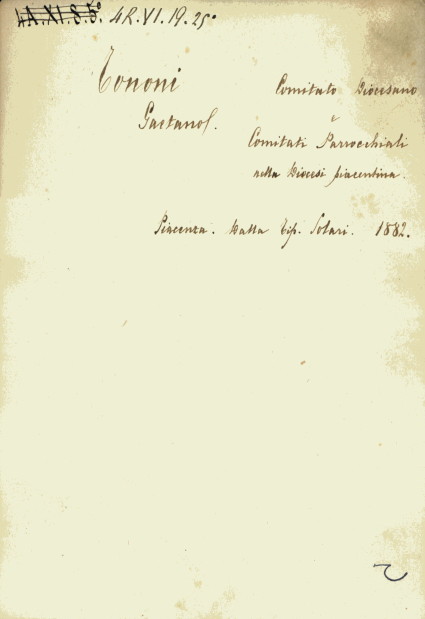 4A.XI.8.5° 4R.VI.19.25°
Tononi
Gaetano
Comitato Diocesano
e
Comitati Parrocchiali
nella Diocesi piacentina.
Piacenza. Dalla Tip. Solari. 1882.